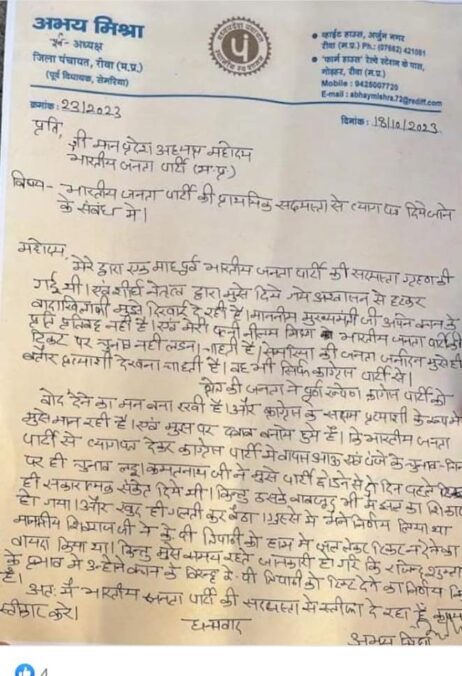 अभय मिश्रा
पूर्व- अध्यक्ष
जिला पंचायत, रीवा (म.प्र.)
(पूर्व विधायक, सेमरिया)
● व्हाईट हाउस, अर्जुन नगर
रीवा (म.प्र.) Ph.: (07662) 421081
● 'फार्म हाउस' रेल्वे स्टेशन के पास,
गोड़हर, रीवा (म.प्र.)
Mobile : 9425007720
E-mail : abhaymishra.72@rediff.com
क्रमांक: 23/2023
दिनांक: 18/10/2023
प्रति,
श्री मान प्रदेश अध्यक्ष महोदय
भारतीय जनता पार्टी (म.प्र.)
विषय- भारतीय जनता पार्टी की प्राथमिक सदस्यता से त्याग पत्र दिये जाने
के संबंध में।
महोदय,
मेरे द्वारा एक माह पूर्व भारतीय जनता पार्टी की सदस्यता ग्रहण की
गई थी। एवं शीर्ष नेतृत्व द्वारा मुझे दिये गये आश्वासन से हटकर
वादाखिलाफी मुझे दिखाई दे रही है। माननीय मुख्यमंत्री जी अपने वचन के
प्रति प्रतिबद्ध नहीं है। एवं मेरी पत्नी नीलम मिश्रा भारतीय जनता पार्टी की
टिकट पर चुनाव नहीं लड़ना चाहती है। सेमरिया की जनता जनार्दन मुझे ही
बतौर प्रत्याशी देखना चाहती है। वह भी सिर्फ कांग्रेस पार्टी से।
की जनता ने पूर्ण रूपेण कांग्रेस पार्टी को
वोट देने का मन बना रखी है। और कांग्रेस के सक्षम प्रत्याशी के रूप में
मुझे मान रही है। एवं मुझ पर दबाव बनाये हुये है। कि भारतीय जनता
पार्टी से त्यागपत्र देकर कांग्रेस पार्टी में वापस आऊ एवं पंजे के चुनाव-चिन्ह
पर ही चुनाव लडू। कमलनाथ जी ने मुझे पार्टी छोडने से दो दिन पहले टिकट
ही सकारात्मक संकेत दिये थे। किन्तु उसके बावजूद भी मैं छल का शिकार
हो गया। और खुद ही गलती कर बैठा। गुस्से में मैंने निर्णय लिया था
माननीय शिवराज जी ने के. पी. त्रिपाठी को हाथ में जल लेकर टिकट न देने का
वायदा किया था। किन्तु मुझे समय रहते जानकारी हो गई कि राजेन्द्र शुक्ला
के प्रभाव में उन्होंने वचन के विरूद्ध के. पी. त्रिपाठी को टिकट देने का निर्णय
है।
अतः मैं भारतीय जनता पार्टी की सदस्यता से स्तीफा दे रहा हूँ कृपया
स्वीकार करें।
धन्यवाद
अभय मिश्रा
4